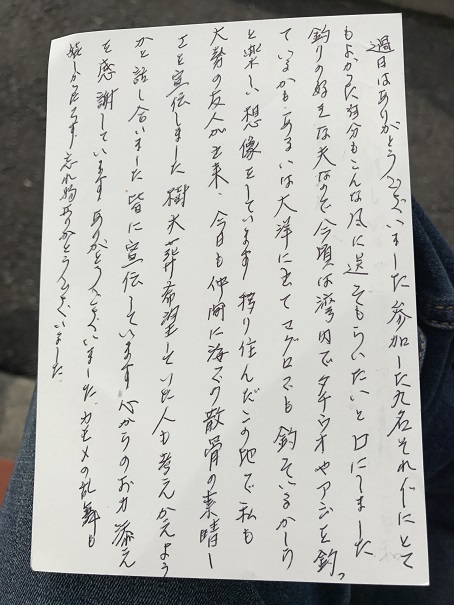 過日はありがとうございました 参加した九名それぞれにとて
もよかった 自分もこんな風に送ってもらいたいと口にしました
釣りの好きな夫なので今頃は湾内でタチウオやアジを釣っ
ているかも、あるいは大洋に出てマグロでも釣っているかしら
と楽しい想像をしています 移り住んだこの地で私も
大勢の友人が出来、今日も仲間に海での散骨の素晴し
さを宣伝しました 樹木葬希望していた人も考えかえよう
かと話し合いました 皆に宣伝しています 心からのお力添え
を感謝しています ありがとうございました カモメの乱舞も
忘れ物ありがとうございました